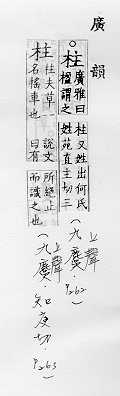 廣韻
○柱廣雅曰
楹謂之
柱又姓出何氏
姓苑直主切三
(上聲九麌.P262)
柱柱夫草一
名搖車也
說文
曰有
所絕止
而識之也
(上聲九麌.知庾切.P263)